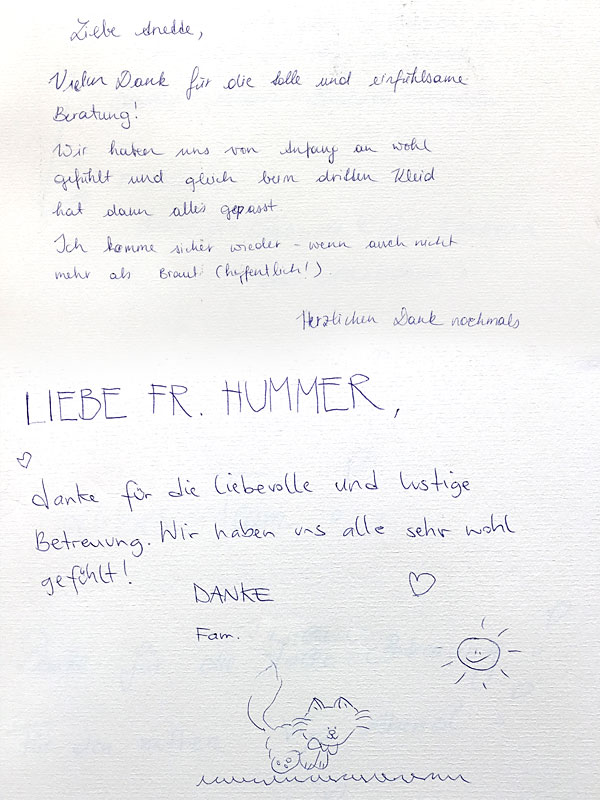 Liebe Anedde,
Vielen Dank für die tolle und einfühlsame
Beratung!
Wir haben uns von Anfang an wohl
gefühlt und gleich beim dritten Kleid
hat dann alles gepasst
Ich komme sicher wieder - wenn auch nicht
mehr als Braut (hoffentlich!).
Herzlichen Dank nochmals
LIEBE FR. HUMMER,
danke für die liebevolle und lustige
Betreuung. Wir haben uns alle sehr wohl
gefühlt!
DANKE
Fam.